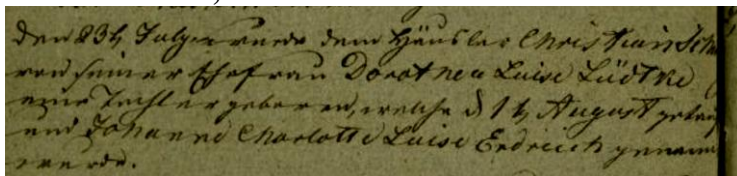 den 23t July wurde dem Häusler Christian Sch
von seiner Ehefrau Dorothea Luise Lüdtke
eine Tochter geboren, welche d 1t August getauf
und Johanne Charlotte Luise genann
wurde.